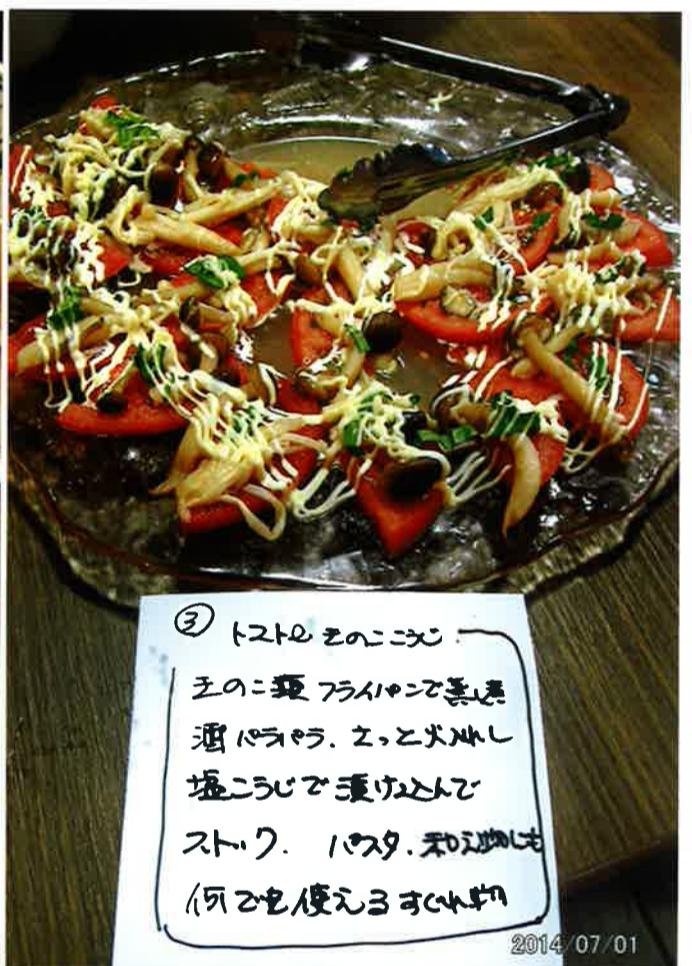 ③ トマトときのここうじ
きのこ類 フライパンで蒸し煮
酒パラパラ、さっと火入れし
塩こうじで漬け込んで
ストック. パスタ、和え物にも
何でも使えるすぐれ物
2014/07/01